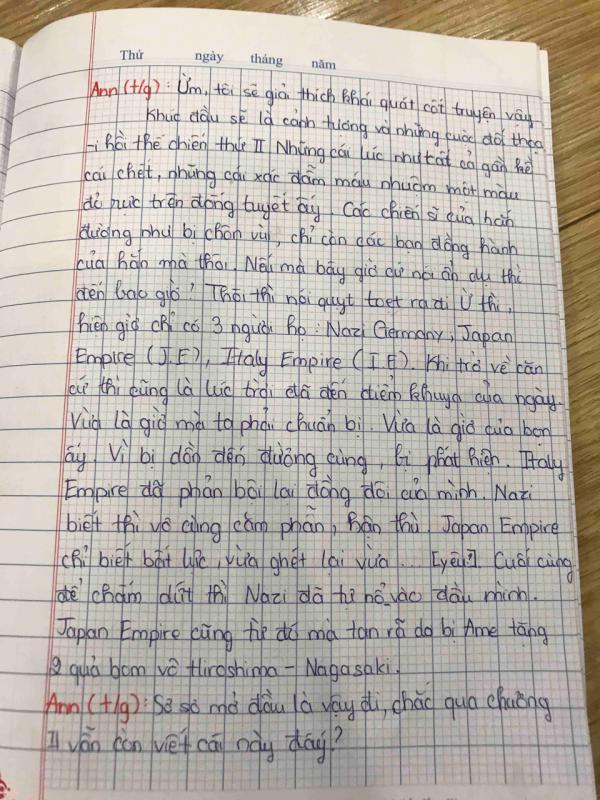 Thứ ngày tháng năm
Ann (t/g): Ừm, tôi sẽ giải thích khái quát cốt truyện vậy
Khúc đầu sẽ là cảnh tượng và những cuộc đối thoạ
-i hồi thế chiến thứ II. Những cái lúc như tất cả gần kề
cái chết, những cái xác đẫm máu nhuộm một màu
đỏ rực trên đống tuyết ấy. Các chiến sĩ của hắn
dường như bị chôn vùi, chỉ còn các bạn đồng hành
của hắn mà thôi. Nếu mà bây giờ cứ nói ẩn dụ thì
đến bao giờ? Thôi thì nói quỵt toẹt ra đi Ừ thì,
hiện giờ chỉ có 3 người họ: Nazi Germany, Japan
Empire (J.E), Italy Empire (I.E). Khi trở về căn
cứ thì cũng là lúc trời đã đến điểm khuya của ngày.
Vừa là giờ mà ta phải chuẩn bị. Vừa là giờ của bọn
ấy. Vì bị dồn đến đường cùng, bị phát hiện. Italy
Empire đã phản bội lại đồng đội của mình. Nazi
biết thì vô cùng căm phẫn, hận thù. Japan Empire
chỉ biết bất lực, vừa ghét lại vừa... [yêu?]. Cuối cùng
để chấm dứt thì Nazi đã tự nổ vào đầu mình.
Japan Empire cũng từ đó mà tan rã do bị Ame tặng
2 quả bom vô Hiroshima - Nagasaki.
Ann (t/g): Sơ sơ mở đầu là vậy đi, chắc qua chương
II vẫn còn viết cái này đấy?